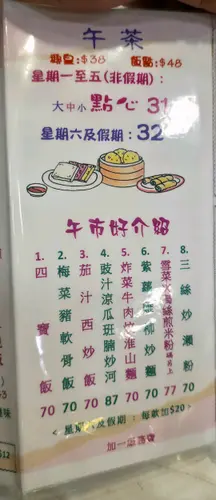 午茶
$38 飯點:$48
星期一至五(非假期):
大中小 點心 31
星期六及假期: 32
午市好介紹
1. 四寶飯 70
2. 梅菜豬軟骨飯 70
3. 茄汁西炒飯 70
4. 豉汁涼瓜斑腩炒河 87
5. 炸菜牛肉炆淮山麵 70
6. 紫 柳炒麵 70
7. 雪菜 煎米粉 77
8. 三絲炒瀨粉 70
星期 假期 : 每款加$20
加一服務費